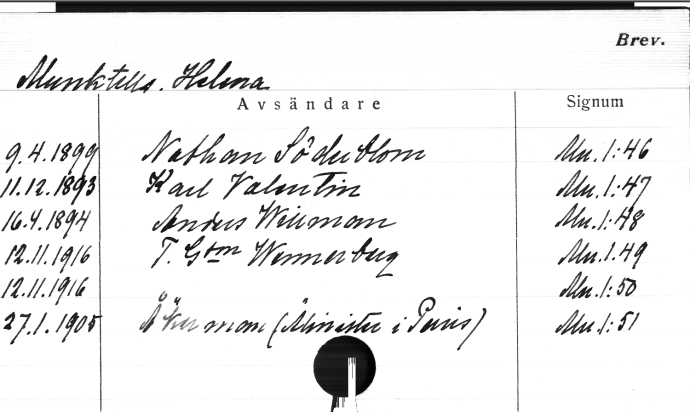 Brev.
Munktells. Helena
Avsändare Signum
9.4.1899 Nathan Söderblom Mu.1:46
11.12.1893 Karl Valentin Mu.1:47
16.4.1894 Anders Willman Mu.1:48
12.11.1916 T. Gtm Wennerberg Mu.1.49
12.11.1916 Mu.1:50
27.1.1905 Åkerman (Minister i Paris) Mu.1:51